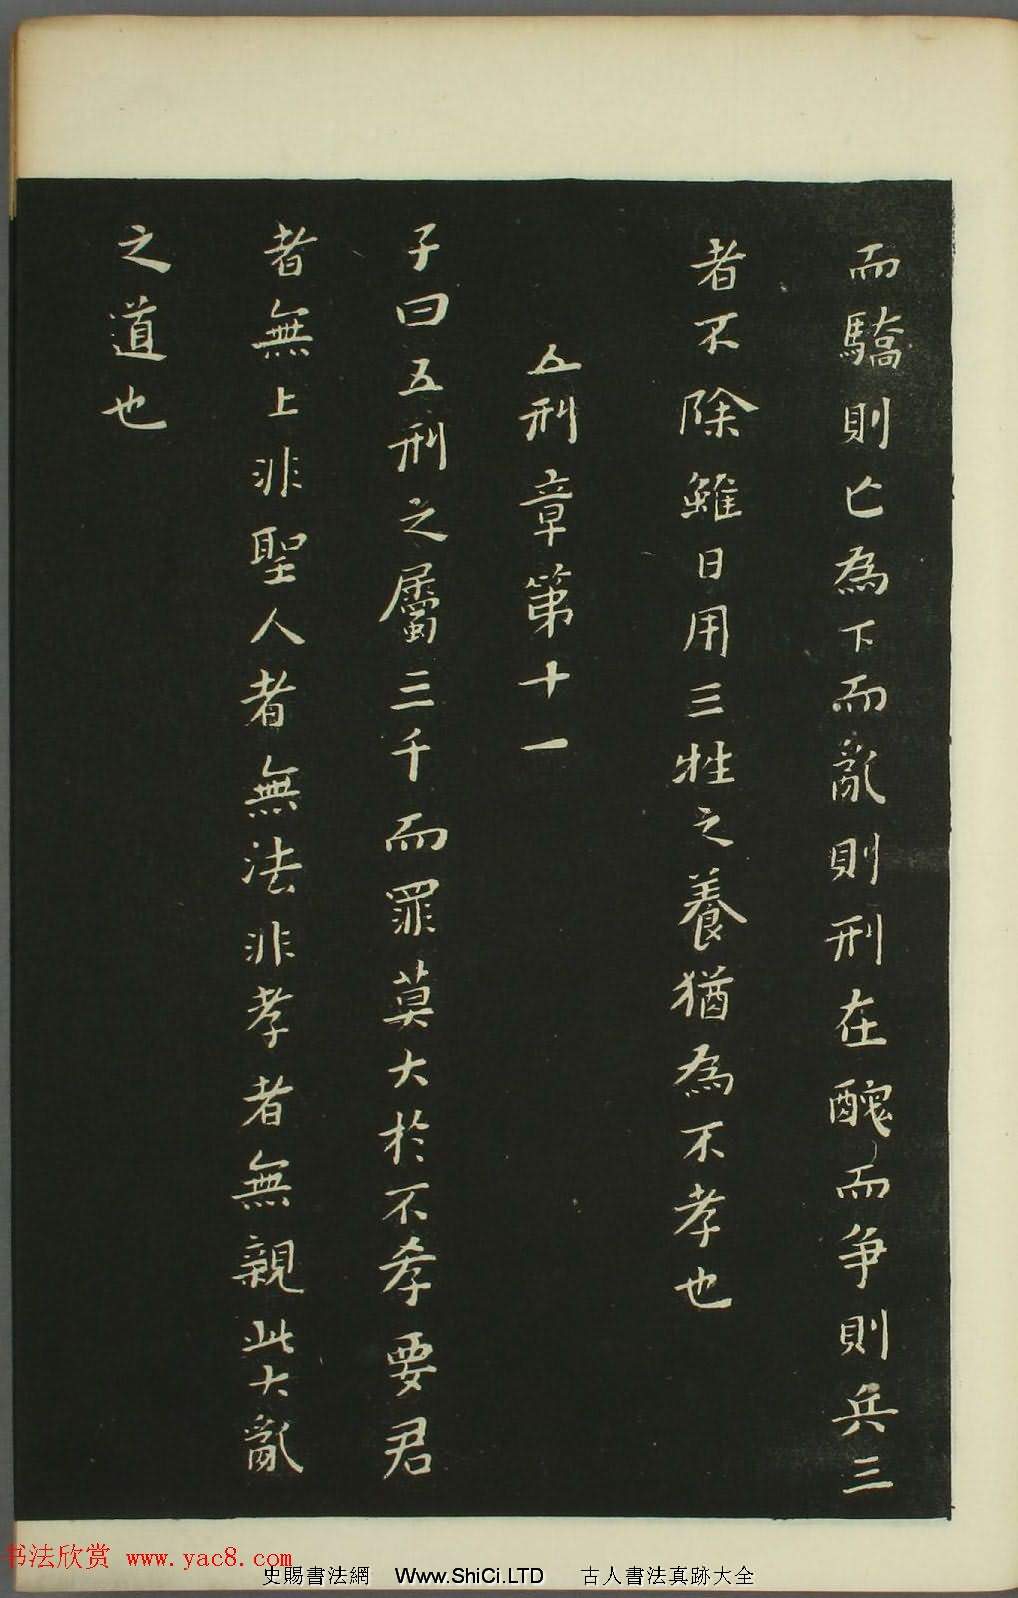 而驕則亡為下而亂則刑在醜而爭則兵三
者不除雖日用三牲之養猶為不孝也
五刑章第十一
子曰五刑之屬三千而罪莫大於不孝要君
者無上非聖人者無法非孝者無親此大亂
之道也
书法欣赏 www.yac8.com
史賜書法網 Www.ShiCi.LTD 古人書法真跡大全